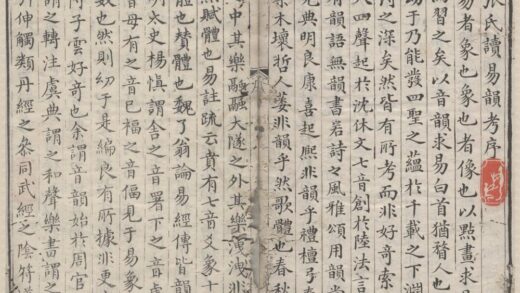 張氏讀易韻考序
易者象也象也者像也以點畫求
習之矣以音韻求易曰首猶瞀人也
于乃能發四聖之蘊於千載之下淵
之深矣然皆有所考而非好奇索
人四聲起於沈休文七音創於陸法言
有韻語無韻書若詩之風雅頌用韻尚
堯典明良康喜起熙非韻乎禮檀弓
木壞哲萎非韻乎然歌體也春秋
中其樂融融大隧之外其樂洩洩非
然賦體也易註疏云賁有七音爻象十
體也贊體也魏了翁論易經傳皆韻
明太史楊慎謂舍之音署下之音虞
音母有之音巳福之音偪見于易象
數也然則幼于是編良有所據非更
符子雲好奇也余謂音韻始於周官
謂之轉注虞典謂之和聲樂書謂之
引伸觸類丹經之叅同武經之陰符